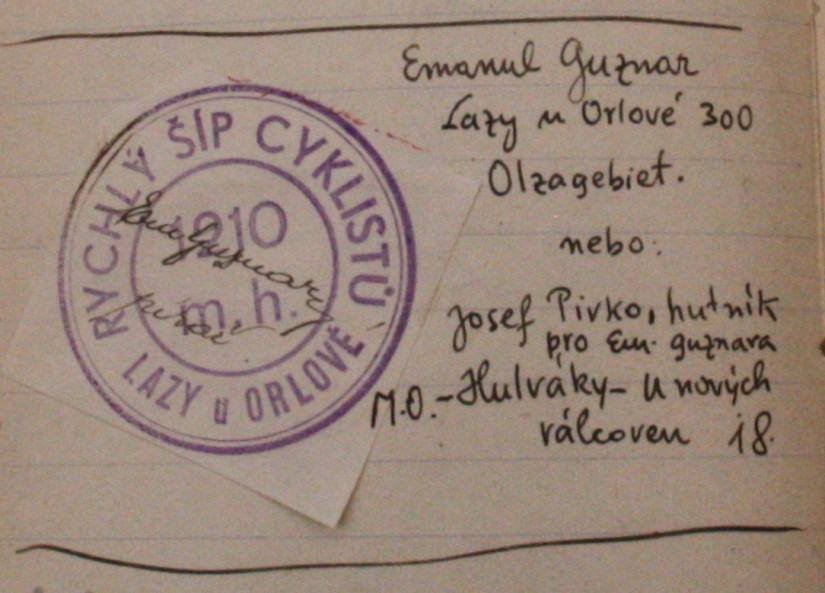 RYCHLÝ ŠÍP CYKLISTŮ
1910
m. h.
LAZY u ORLOVÉ
Em. Guznar
Emanul Guznar
Lazy u Orlové 300
Olzagebiet.
nebo:
Josef Pivko, hutník
pro Em. Guznara
M.O.-Hulváky- U nových
válcoven 18.